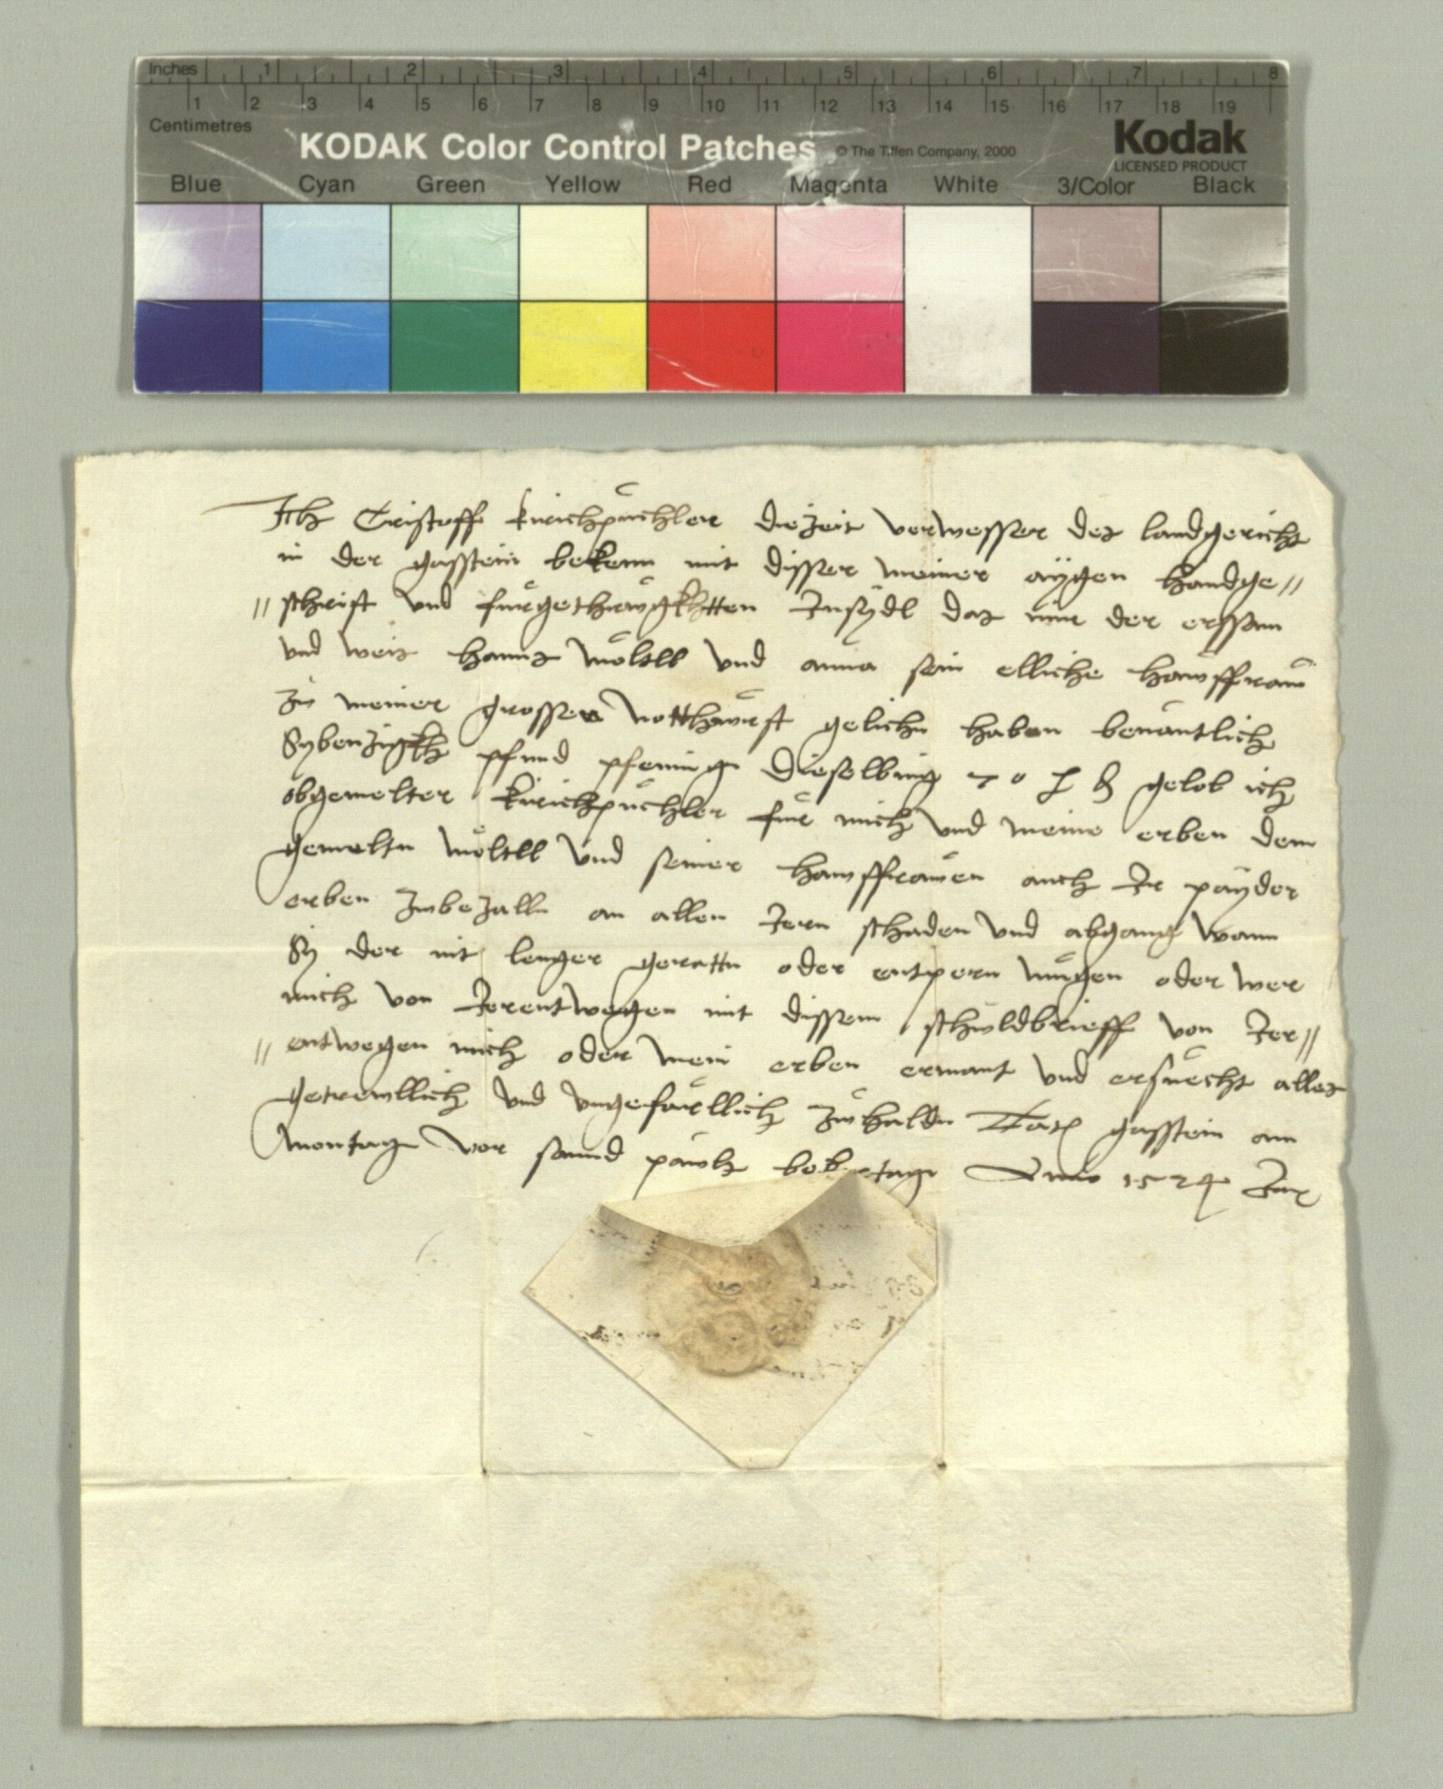 Inches 1 2 3 4 5 6 7 8
1 2 3 4 5 6 7 8 9 10 11 12 13 14 15 16 17 18 19
Centimetres
KODAK Color Control Patches © The Tiffen Company, 2000 Kodak
LICENSED PRODUCT
Blue Cyan Green Yellow Red Magenta White 3/Color Black
Ich Cristoff kirichpüchler diezeit verwesser des landgericht
in der gasstein bekenn mit disser meiner aÿgen handge//
//schrift vnd Insÿdl das mir der erssam
vnd weis hanns wöltll vnd anna sein elliche hawsfraw
zu meiner grossen notthurft gelichn haben benantlich
Sybenzigkh pfund pfening dieselbing 70 gelob ich
obgemelter kirichpüchler für mich vnd meine erben dem
gemeltn wöltll vnd seiner hawsfrawen auch Ir payder
erben zubezalln an allen Iern schaden vnd abgang wann
Sy der nit lenger gerattn oder entpern mügen oder wer
mich von Ierentwegen mit dissem schuldbrieff von Ier//
//entwegen mich oder mein erben ermant vnd ersuecht alles
getrewllich vnd vngefärllich zuhaldn Dat gasstein am
montag vor sannd pawls Anno 1524 Jar